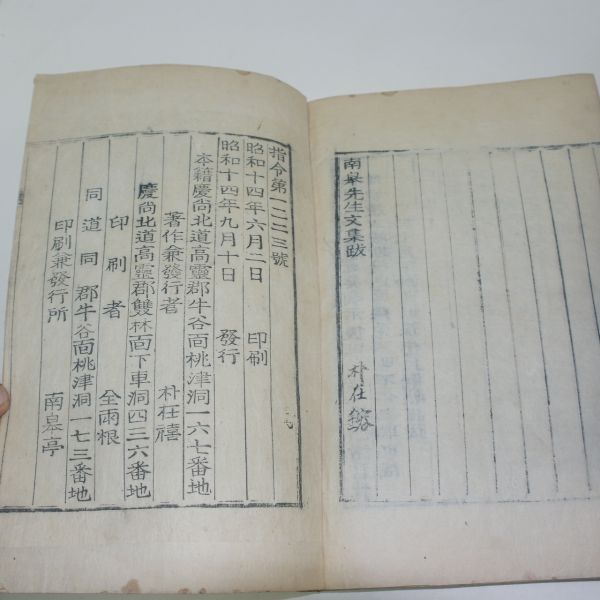 南皐先生文集跋
朴在
指令第一二二三號
昭和十四年六月二日 印刷
昭和十四年九月十日 發行
本籍慶尚北道高靈郡牛谷面桃津洞一六七番地
著作兼發行者 朴在禧
慶尚北道高靈郡雙林面下車洞四三六番地
印刷者 全雨根
同道同郡牛谷面桃津洞一七三番地
印刷兼發行所 南皐亭